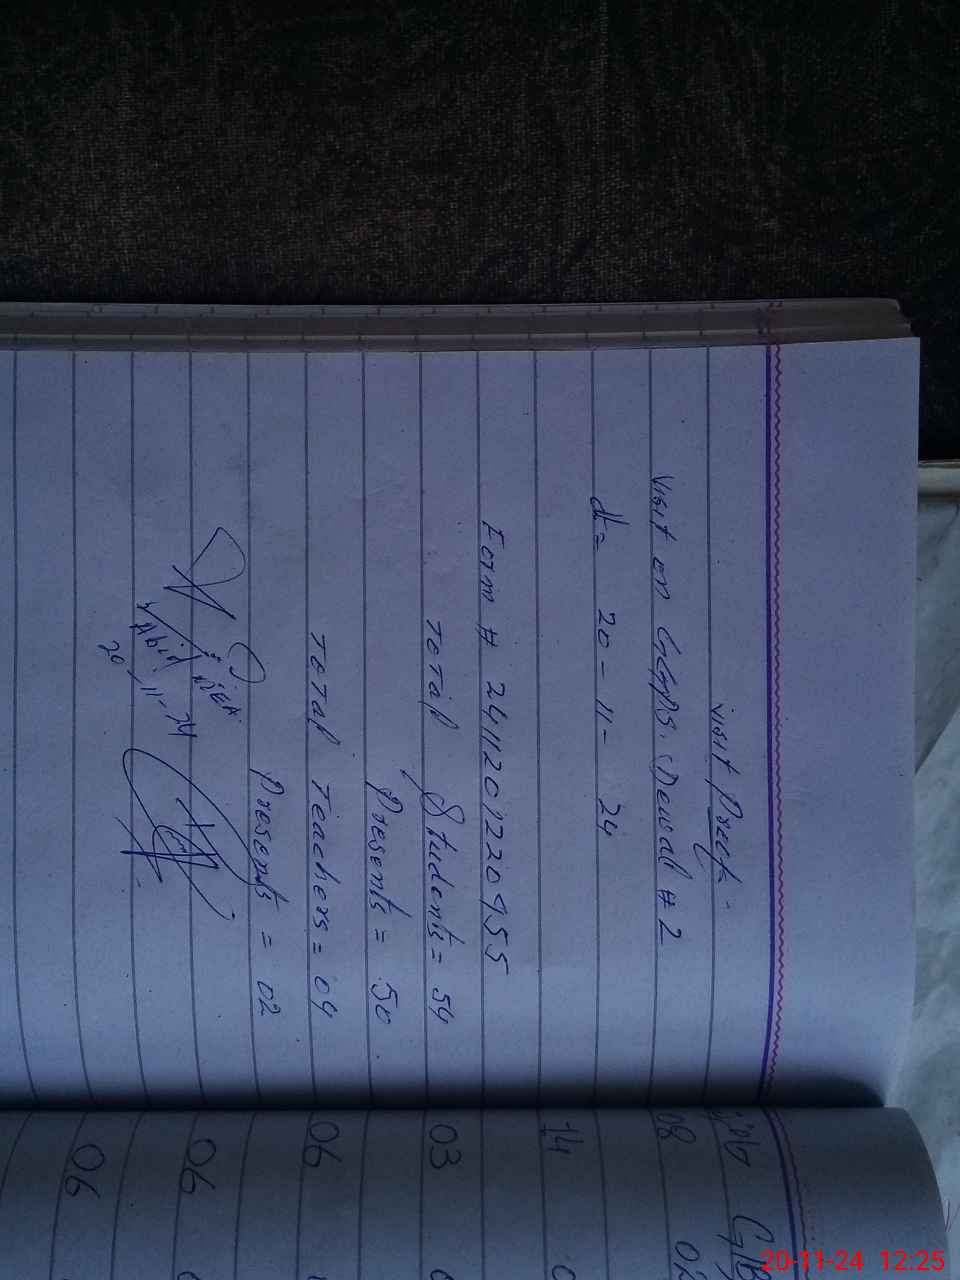 visit Proof.
visit on GGPS. Dewal # 2
dt = 20 - 11 - 24
Form # 2411201220955
Total Students = 54
Presents = 50
Total Teachers = 04
Presents = 02
Abid
20-11-24
08 02
14
03
06
06
06
20-11-24 12:25